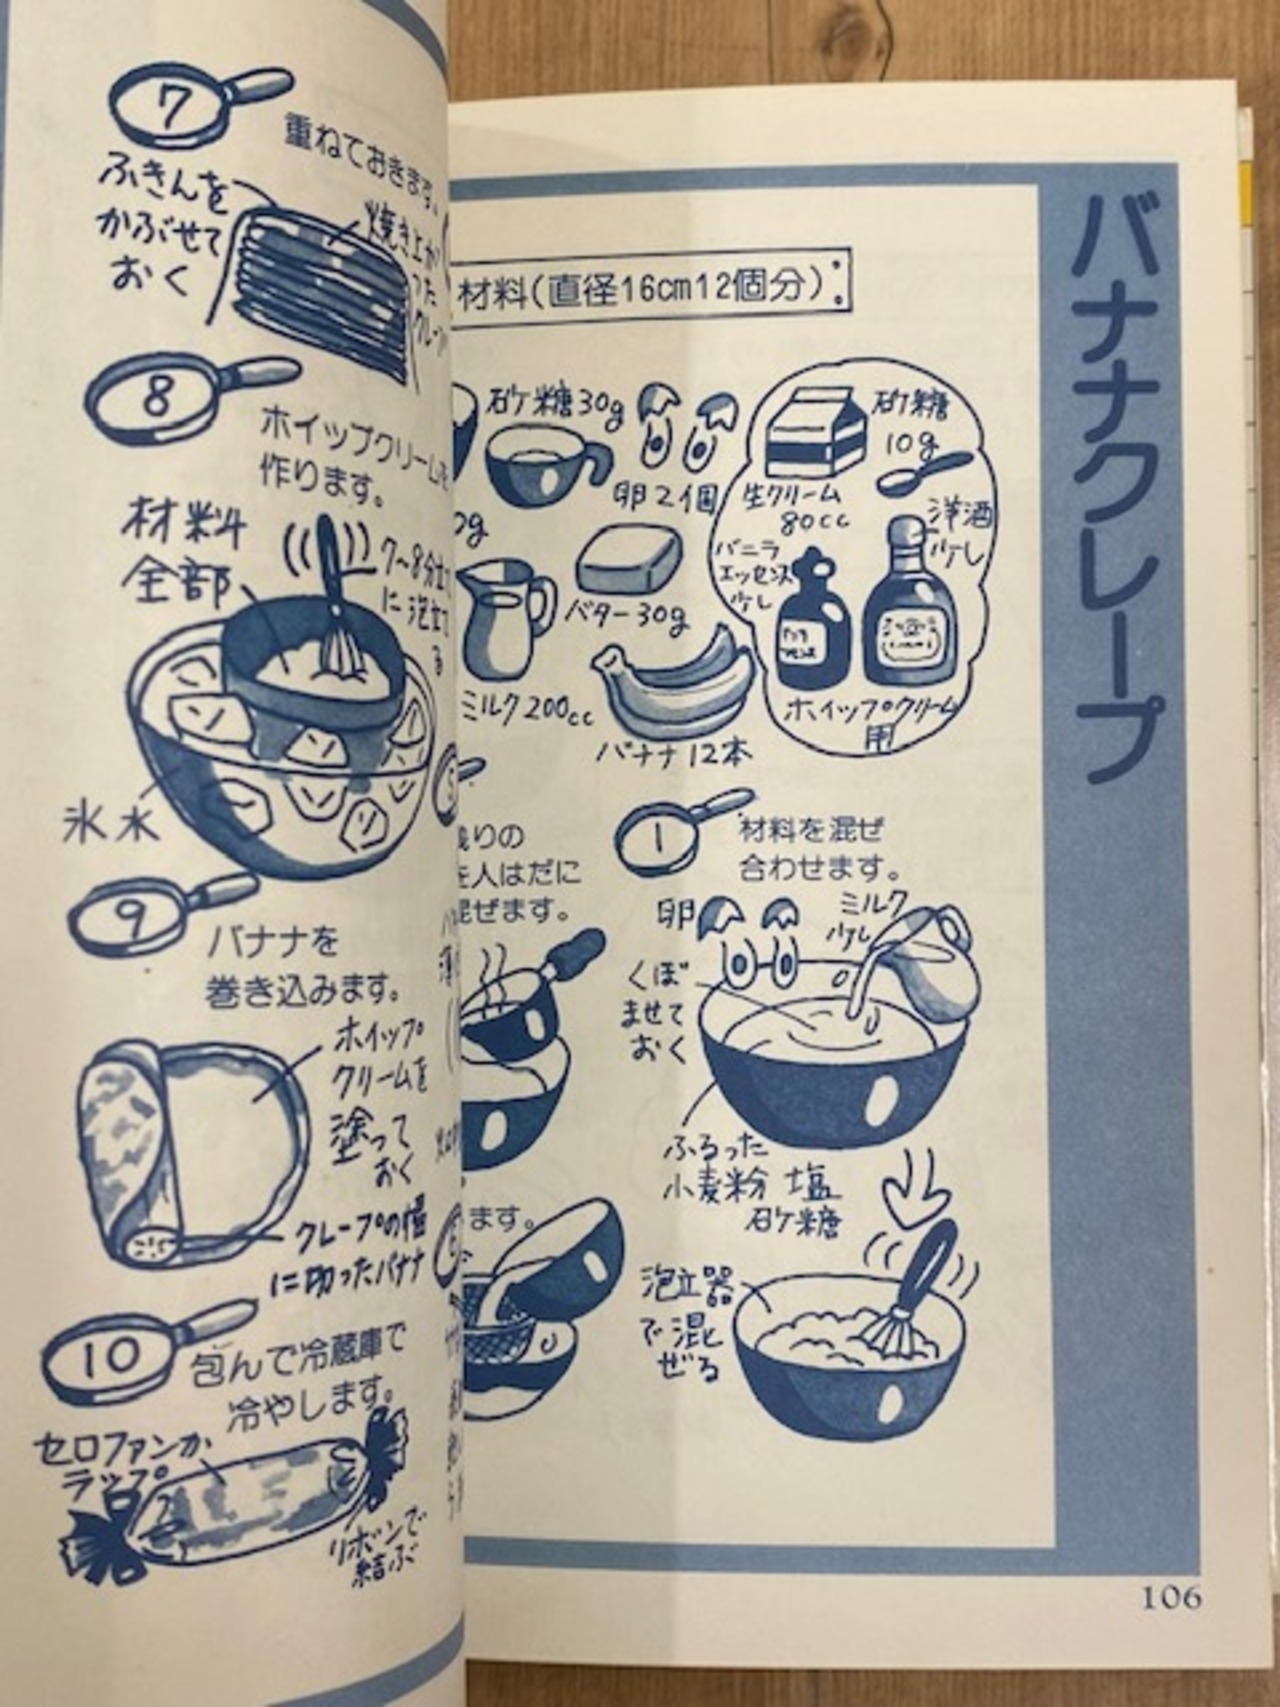 バナナクレープ
材料(直径16cm12個分)
砂糖30g
卵2個
0g
バター30g
ミルク200cc
バナナ12本
生クリーム
80cc
砂糖
10g
バニラ
エッセンス
少し
洋酒
少し
ホイップクリーム
用
1
材料を混ぜ
合わせます。
卵
ミルク
少し
くぼ
ませて
おく
ふるった
小麦粉 塩
砂糖
泡立器
で混
ぜる
りの
を人はだに
混ぜます。
ます。
106
7
重ねておきます。
ふきんを
かぶせて
おく
焼き上が
った
クレープ
8
ホイップクリームを
作ります。
材料
全部
7〜8分立て
に泡立て
る
氷水
9
バナナを
巻き込みます。
ホイップ
クリームを
塗って
おく
クレープの幅
に切ったバナナ
10
包んで冷蔵庫で
冷やします。
セロファンか
ラップ
リボンで
結ぶ